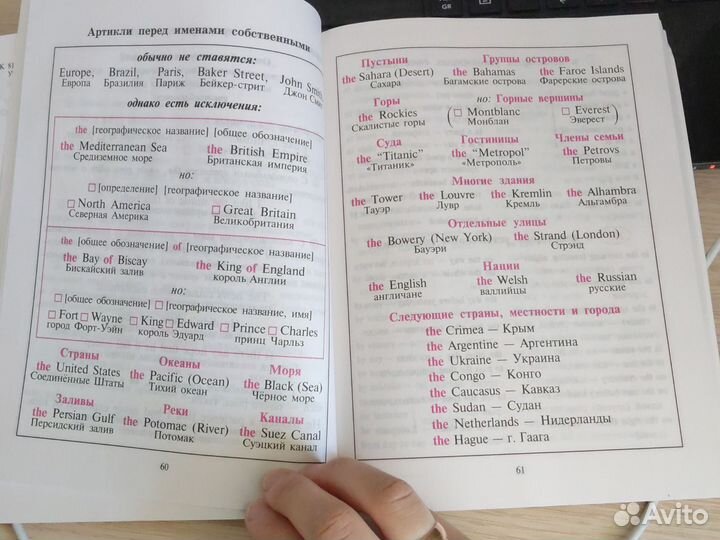 Артикли перед именами собственными
обычно не ставятся:
Europe, Brazil, Paris, Baker Street, John
Европа Бразилия Париж Бейкер-стрит Джон
однако есть исключения:
the [географическое название] [общее обозначение]
the Mediterranean Sea the British Empire
Средиземное море Британская империя
но:
□ [определение] [географическое название]
□ North America □ Great Britain
Северная Америка Великобритания
the [общее обозначение] of [географическое название]
the Bay of Biscay the King of England
Бискайский залив король Англии
но:
□ [общее обозначение] □ [географическое название, имя]
□ Fort □ Wayne □ King □ Edward □ Prince □ Charles
город Форт-Уэйн король Эдуард принц Чарльз
Страны Океаны Моря
the United States the Pacific (Ocean) the Black (Sea)
Соединённые Штаты Тихий океан Чёрное море
Заливы Реки Каналы
the Persian Gulf the Potomac (River) the Suez Canal
Персидский залив Потомак Суэцкий канал
60
Пустыни Группы островов
the Sahara (Desert) the Bahamas the Faroe Islands
Сахара Багамские острова Фарерские острова
Горы но: Горные вершины
the Rockies (□ Montblanc □ Everest)
Скалистые горы Монблан Эверест
Суда Гостиницы Члены семьи
the “Titanic” the “Metropol” the Petrovs
«Титаник» «Метрополь» Петровы
Многие здания
the Tower the Louvre the Kremlin the Alhambra
Тауэр Лувр Кремль Альгамбра
Отдельные улицы
the Bowery (New York) the Strand (London)
Бауэри Стрэнд
Нации
the English the Welsh the Russian
англичане валлийцы русские
Следующие страны, местности и города
the Crimea — Крым
the Argentine — Аргентина
the Ukraine — Украина
the Congo — Конго
the Caucasus — Кавказ
the Sudan — Судан
the Netherlands — Нидерланды
the Hague — г. Гаага
61
Avito